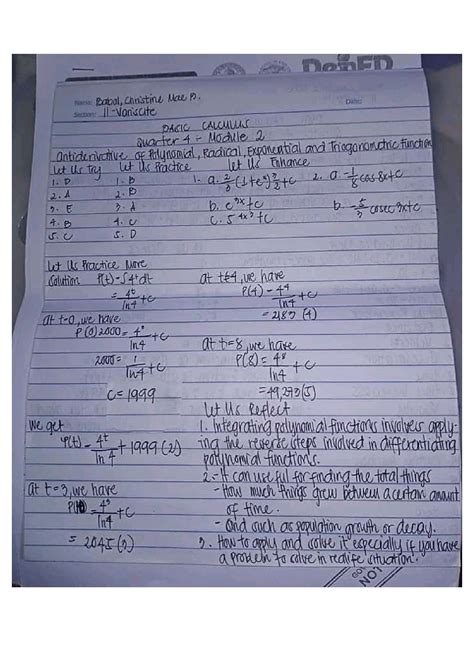 DepED
Name: Babol, Christine Mae P. Date:
Section: 11-Variscite
BASIC CALCULUS
Quarter 4 - Module 2
Antiderivative of Polynomial, Radical, Exponential and Triogonometric Function
Let Us Try Let Us Practice Let Us Enhance
1. D 1. B 1. a. 2/3 (1+e^x)^3/2 + C 2. a. -1/8 cos 8x+C
2. A 2. B
3. E 3. A b. e^3x + C b. -5/3 cosec 3x+C
4. B 4. C c. 5^4x^3 + C
5. C 5. D
Let Us Practice More
Solution: P(t) = ∫4^t dt
= 4^t/ln4 + C
At t=0, we have
P(0) 2000 = 4^0/ln4 + C
2000 = 1/ln4 + C
C = 1999
We get
P(t) = 4^t/ln4 + 1999 (2)
At t=3, we have
4^3/ln4 + C
= 2045 (3)
At t=4, we have
P(4) = 4^4/ln4 + C
= 2183 (4)
At t=8, we have
P(8) = 4^8/ln4 + C
= 49,273 (5)
Let Us Reflect
1. Integrating polynomial functions involves apply-
ing the reverse steps involved in differenticating
polynomial functions.
2. - It can useful for finding the total things
- How much things grew between a certain amount
of time.
- And such as population growth or decay.
3. How to apply and solve it especially if you have
a problem to solve in realife situation.